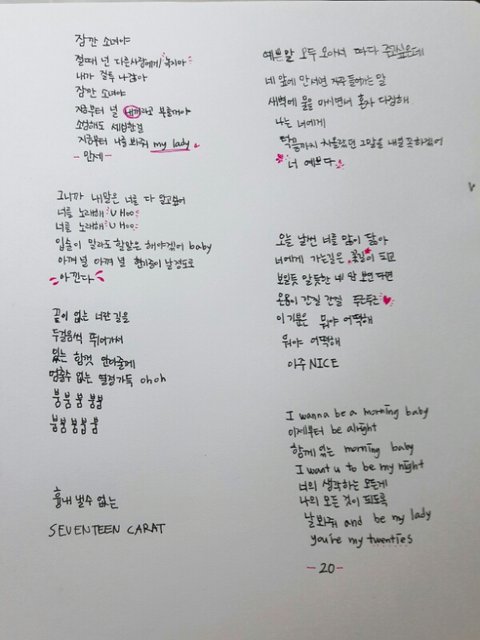 잠깐 소녀야
절대 넌 다른사람에게 녹지마
내가 길들 나잖아
잠깐 소녀야
지금부터 널 내꺼라고 부를거야
소심해도 세심한걸
지금부터 너를 봐줘 my lady
- 만세 -
그니까 내말은 너를 다 알고싶어
너를 노래해 U Hoo
너를 노래해 U Hoo
입술이 말라도 할말은 해야겠어 baby
아껴 널 아껴 널 현기증이 날 정도로
아낀다
끝이 없는 너란 길을
두걸음씩 뛰어가서
있는 힘껏 안아줄게
멈출수 없는 열정가득 oh oh
붐붐 붐 붐붐
붐붐 붐붐 붐
흉내 낼수 없는
SEVENTEEN CARAT
예쁜말 모두 모아서 따다 주고싶은데
네 앞에 만 서면 자꾸 들어가는 말
새벽에 물을 마시면서 혼자 다짐해
나는 너에게
턱끝까지 차올랐던 그말을 내일 꼭 하겠어
너 예쁘다
오늘 날씬 너를 많이 닮아
너에게 가는길은 꽃길이 되고
보일듯 말듯한 네 맘 보면 다면
온몸이 간질 간질 두근두근
이 기분은 뭐야 어떡해
뭐야 어떡해
아주 NICE
I wanna be a morning baby
이제부터 be alright
함께 있는 morning baby
I want u to be my night
너의 생각하는 모든게
나의 모든 것이 되도록
날봐줘 and be my lady
you're my twenties
- 20 -